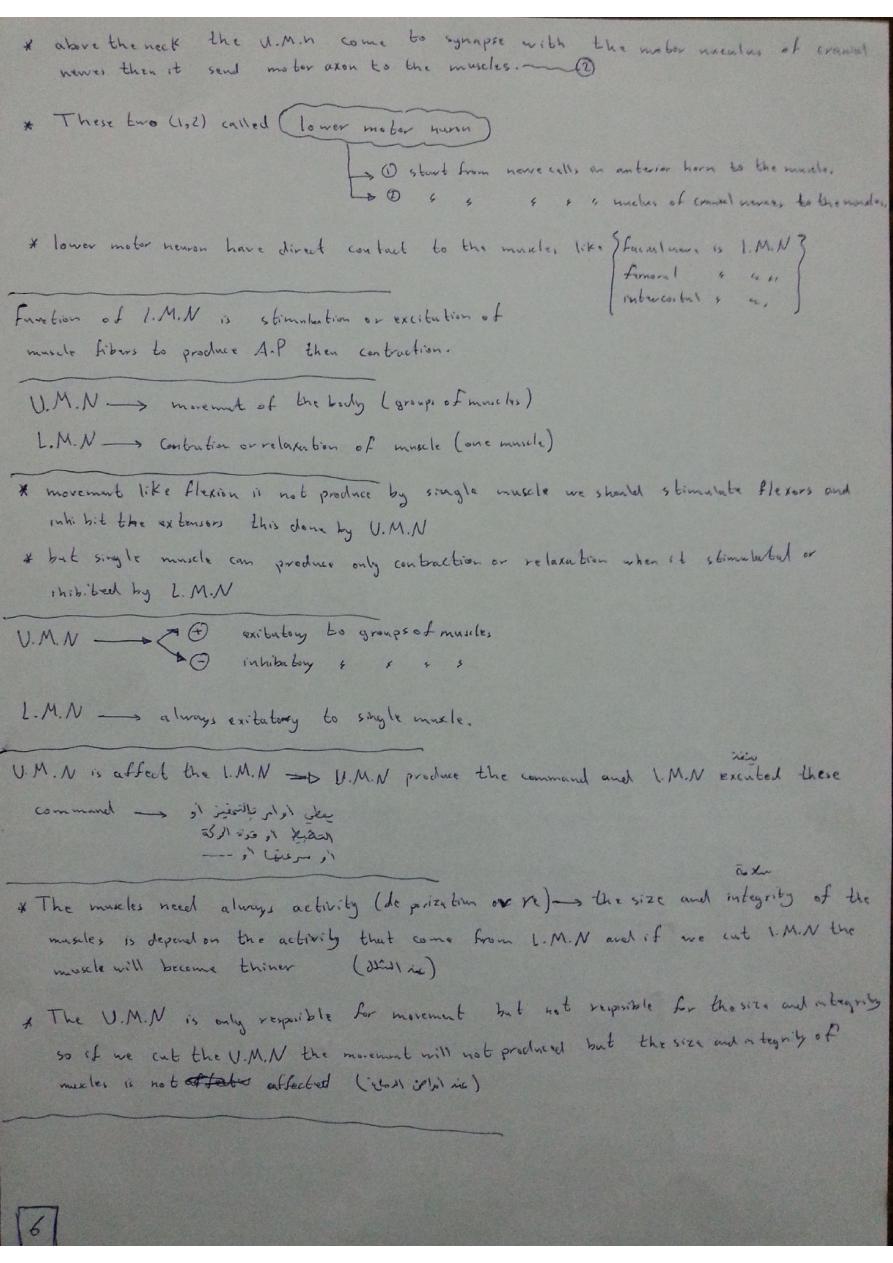 * above the neck the U.M.n come to synapse with the motor nuculus of cranial
nerves then it send motor axon to the muscles. ②
* These two (1,2) called lower motor nurun
→ ① start from nerve cells in anterior horn to the muscle.
→ ② " " " " " nuclus of cranial nerves to the muscles.
* lower motor neuron have direct contact to the muscles like { facial nerve is L.M.N }
femoral " " "
intercostal " " "
Function of L.M.N is stimulation or excitution of
muscle fibers to produce A.P then contraction.
U.M.N → movemut of the body (groups of muscles)
L.M.N → Contrution or relaxation of muscle (one muscle)
* movement like flexion is not produce by single muscle we should stimulate flexors and
inhibit the extensors this done by U.M.N
* but single muscle can produce only contraction or relaxation when it stimulated or
inhibited by L.M.N
U.M.N → ⊕ exitutory to groups of muscles
⊖ inhibatory " " " "
L.M.N → always exitatory to single muscle.
ينفذ
U.M.N is affect the L.M.N ⇒ U.M.N produce the command and L.M.N excuted these
command → يعطي أوامر بالتحفيز أو
التثبيط أو قوة الحركة
أو سرعتها أو ----
سلامة
* The muscles need always activity (deporization or re) → the size and integrity of the
muscles is depend on the activity that come from L.M.N and if we cut L.M.N the
muscle will become thiner (عند الشلل)
* The U.M.N is only resposible for movement but not resposible for the size and integrity
so if we cut the U.M.N the movement will not produced but the size and integrity of
muscles is not affected (عند أمراض)
6